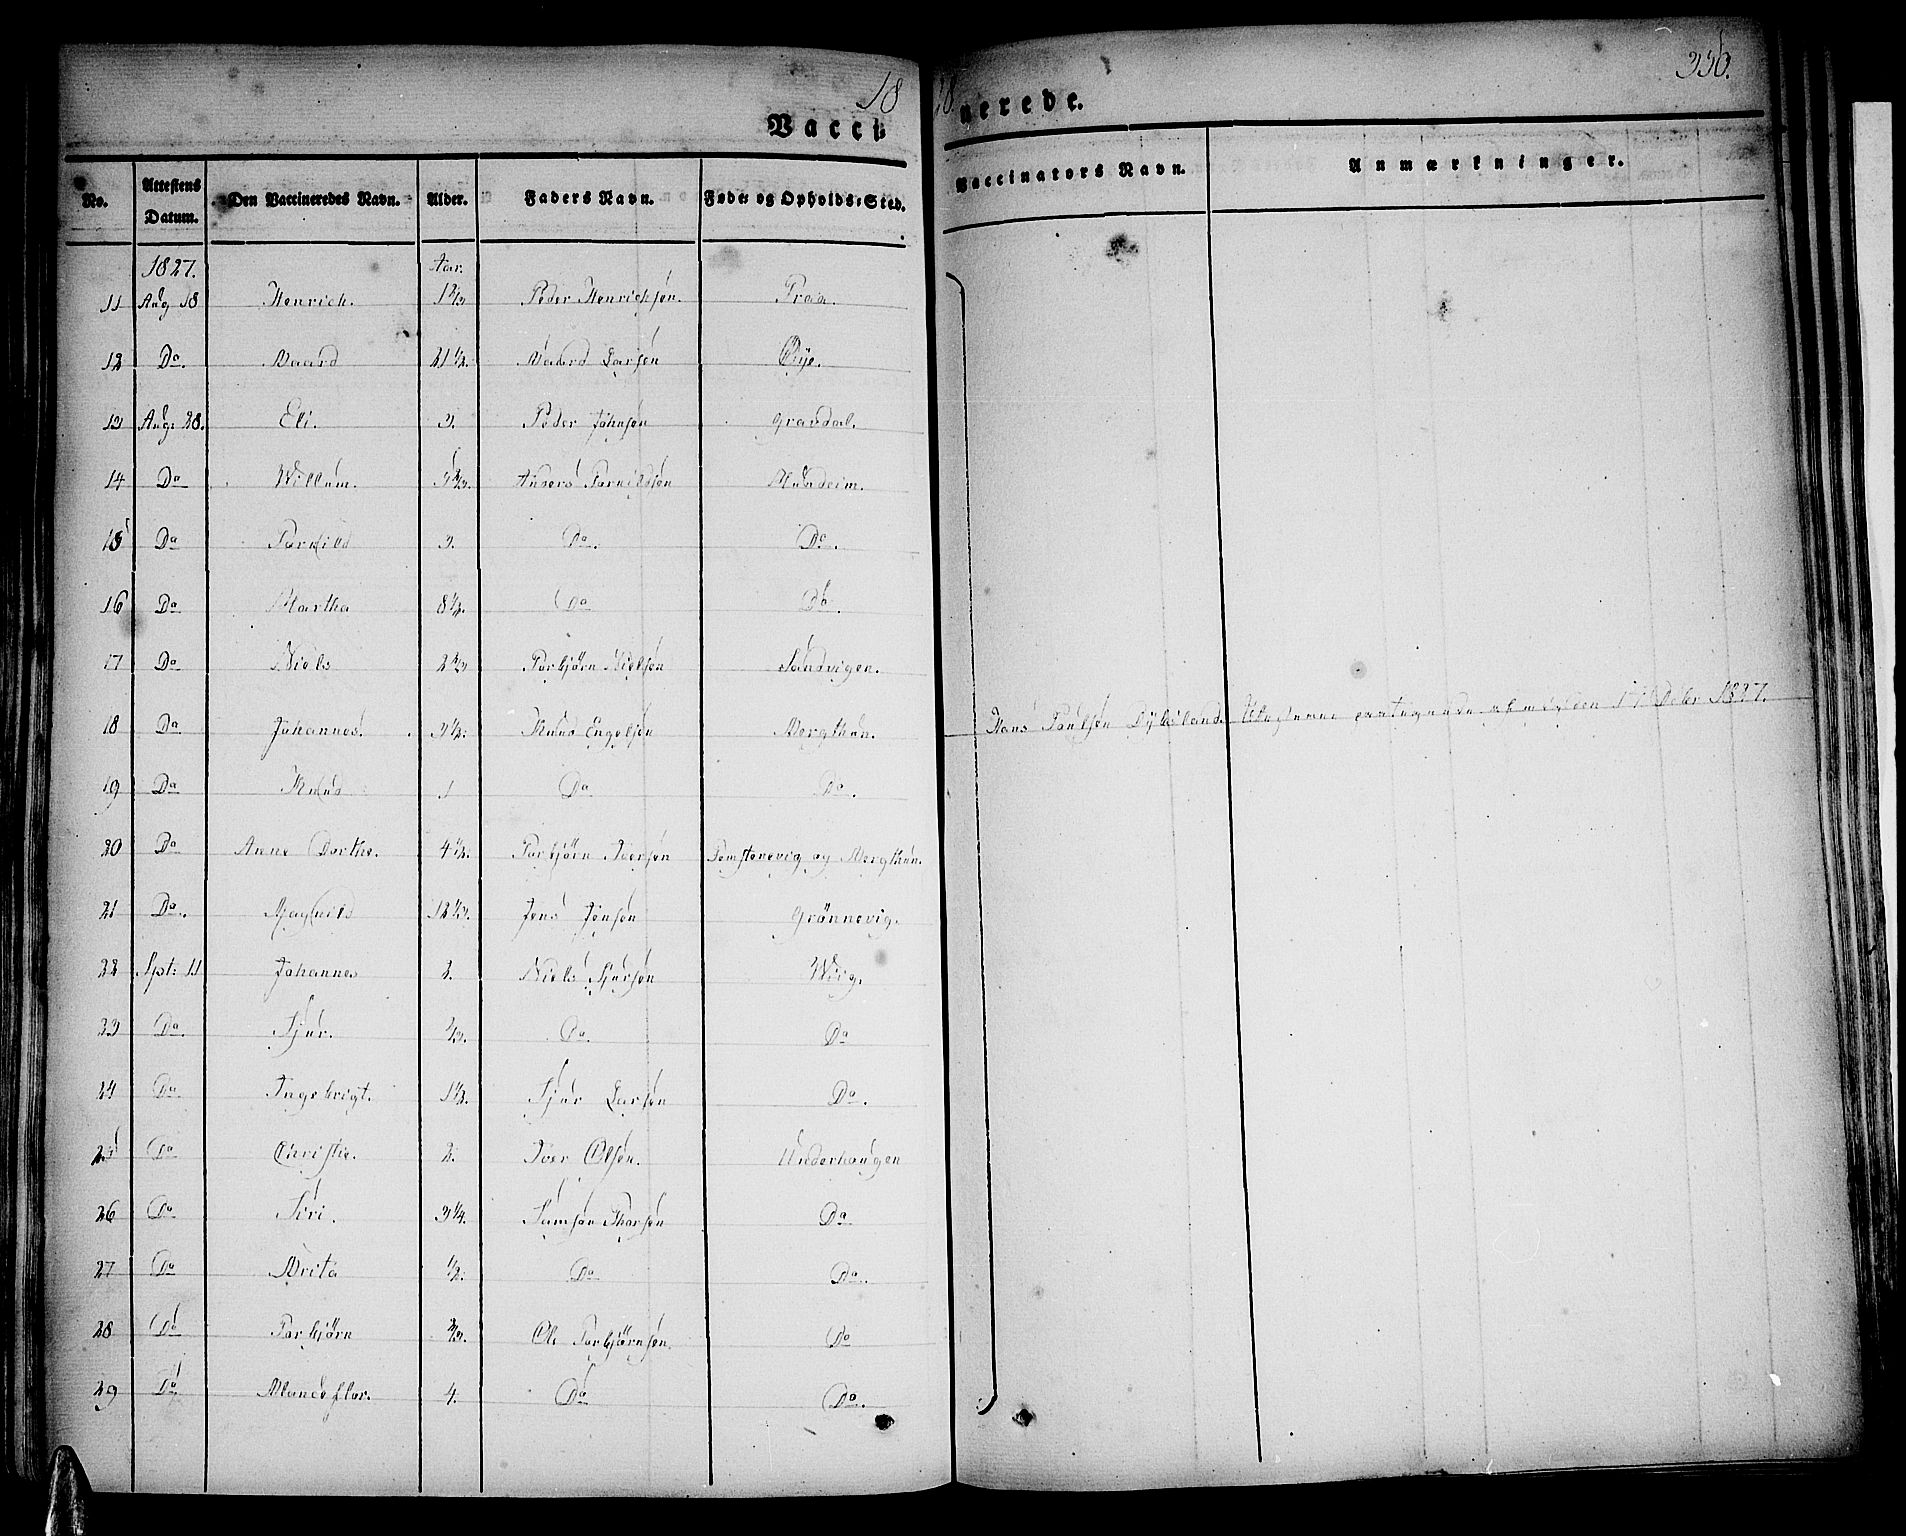 18
18
336.
Vacci-
nerede.
No. Attestens Datum. Den Vaccineredes Navn. Alder. Faders Navn. Føde- og Opholds-Sted. Vaccinators Navn. Anmærkninger.
1827. Aar.
11 Aug 18 Henrich. 1 2/3 Peder Henrichsen. Traa.
12 Do. Baard 21 1/2. Baard Larsen Øye.
13 Aug. 28. Eli. 3. Peder Johnsen Gravdal.
14 Do Willum. Anders Mundeim.
15 Do 3. Do. Do.
16 Do Martha 8 1/2. Do Do.
17 Do Niels Torbjörn Nielsen Sandvigen.
18 Do Johannes. 3 1/2. Knud Engelsen Bergthun. Hans Poulsen Dÿbsland. 1827.
19 Do Knud 1 Do Do.
20 Do Anne Dorthe. 4 1/2. Torbjörn Iversen og Bergthun.
21 Do. Jens Jensen Grönnevig.
22 Spt: 11 Johannes 2. Niels Sjursen Wiig.
23 Do. Sjur. Do. Do
24 Do Ingebrigt. 1 1/2. Sjur Larsen Do.
25 Do Christie. 2. Iver Olsen. Underhaugen
26 Do Siri. 3 1/4. Samson Thorsen Do
27 Do Brita 1/2. Do Do.
28 Do Torbjörn 2/3. Ole Torbjörnsen. Do
29 Do Blanceflor. 4. Do Do.